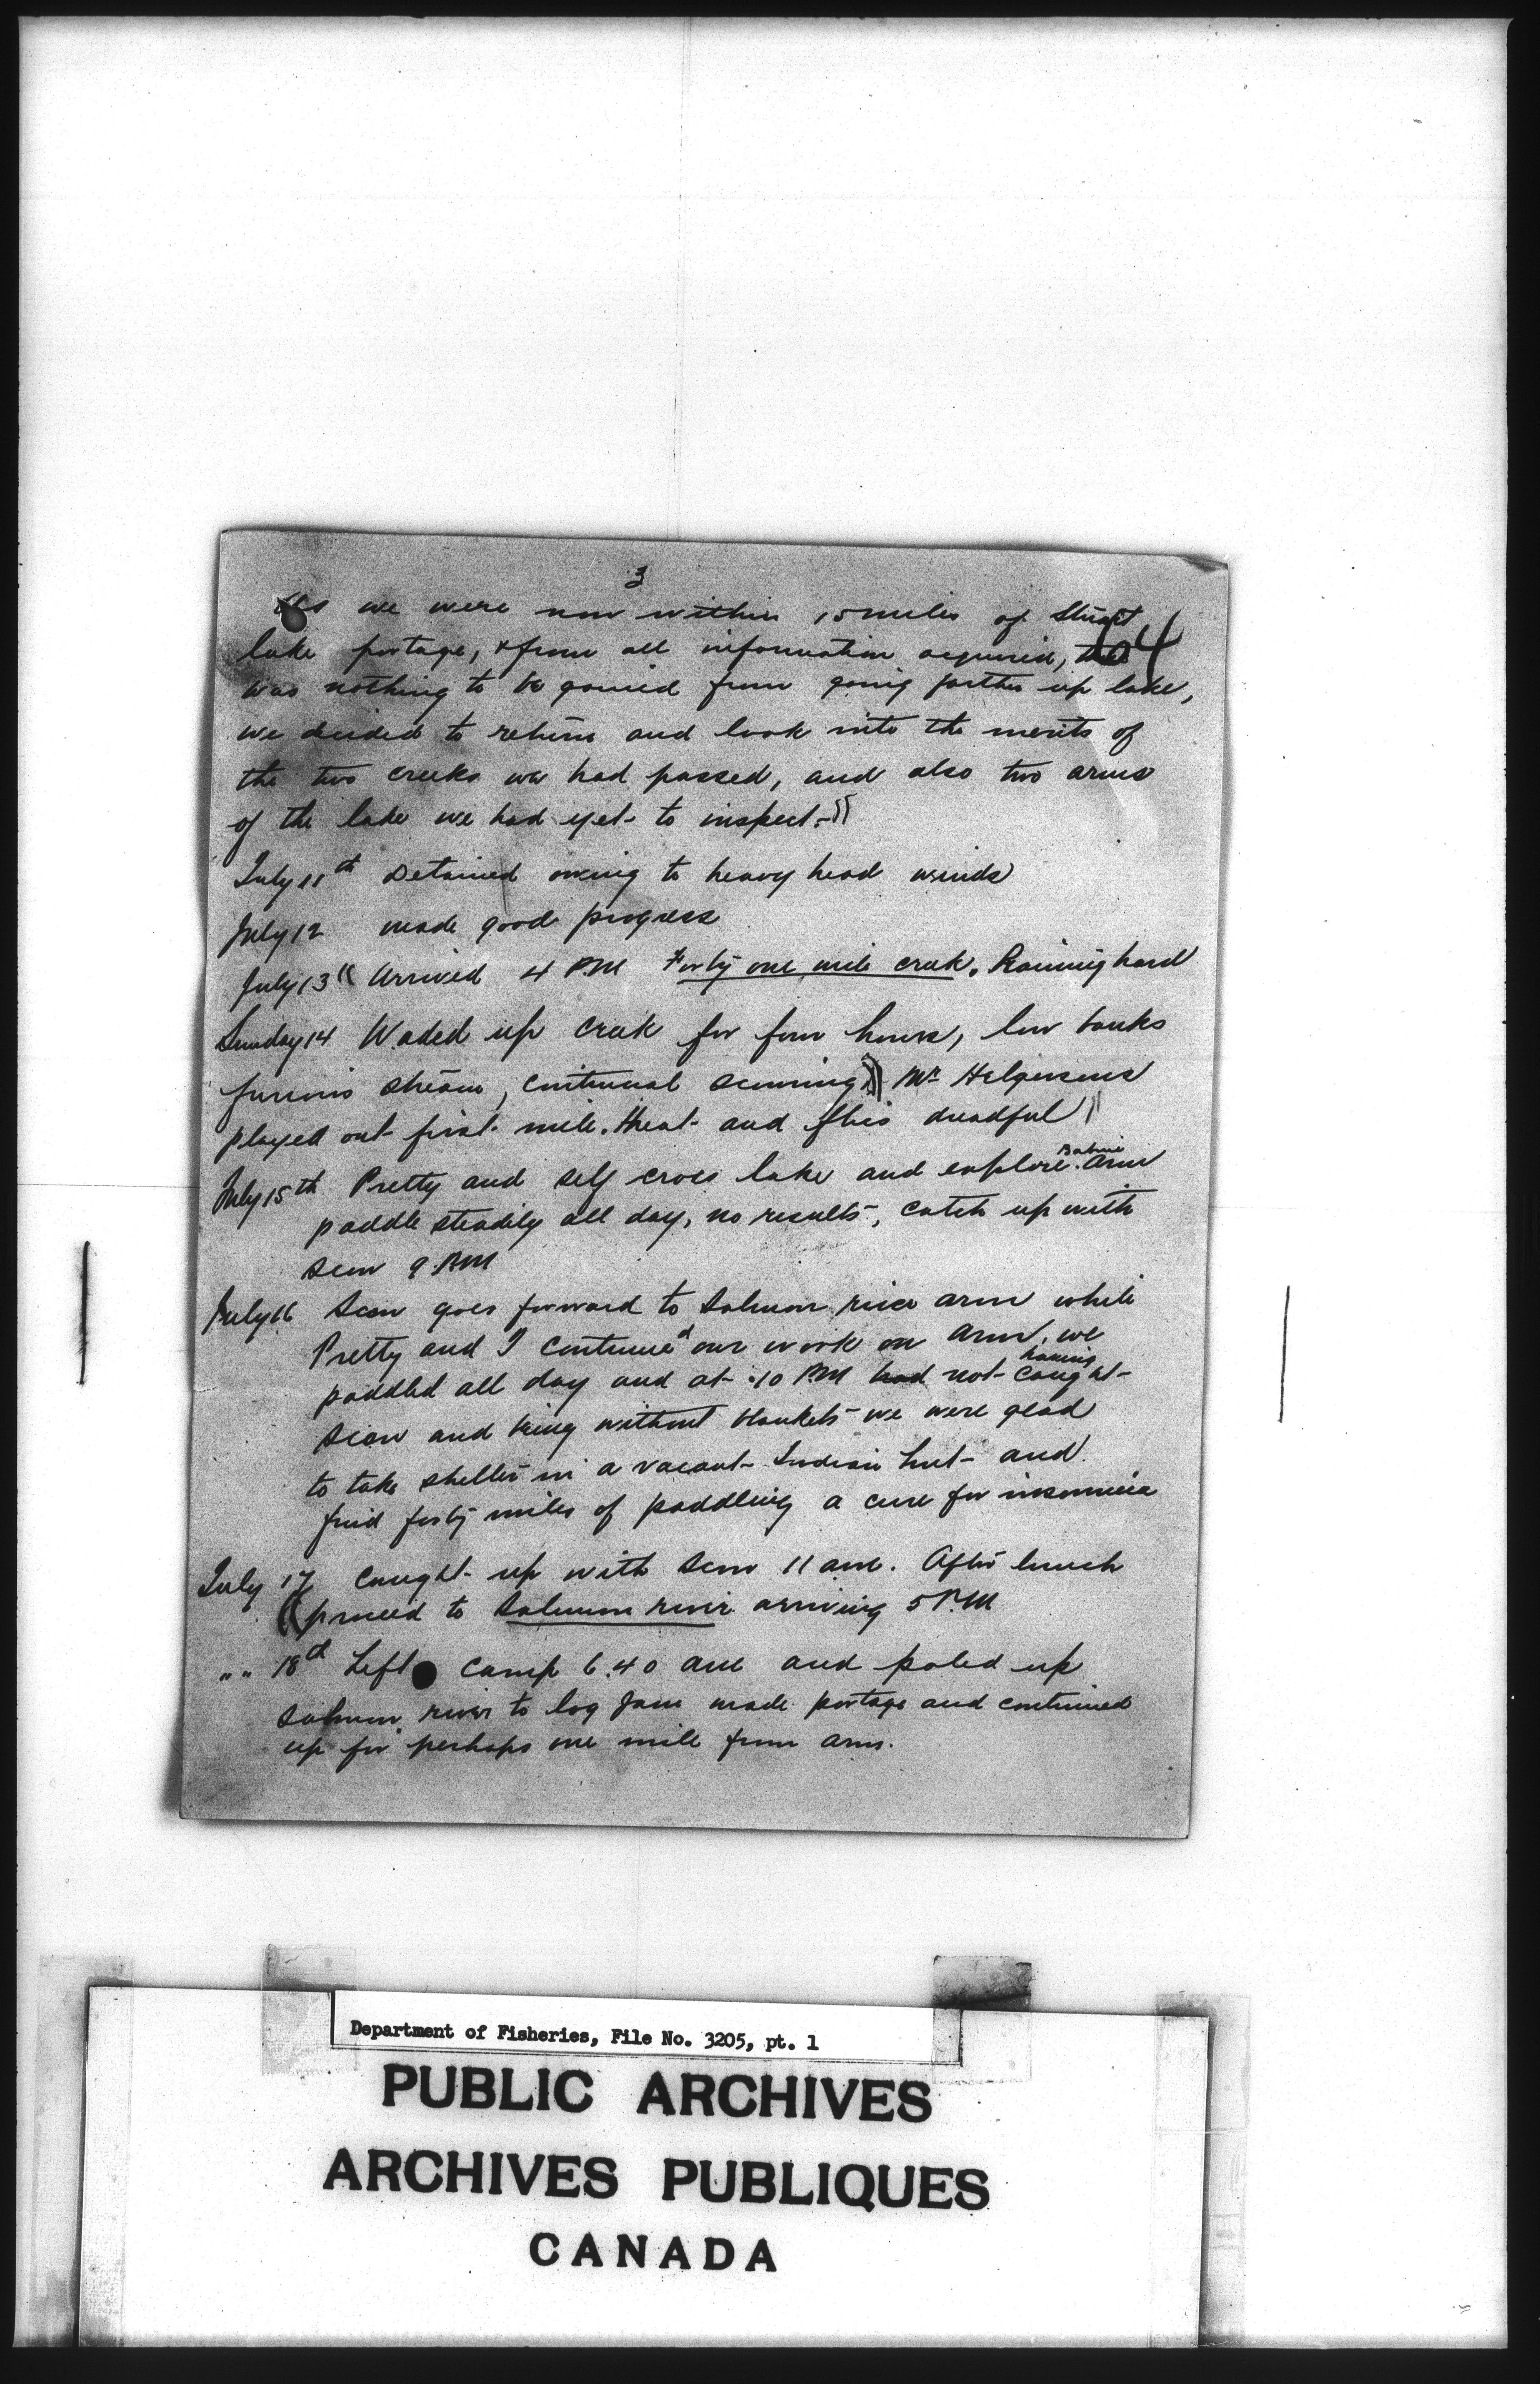 3
As we were now within 15 miles of Stuart
64
lake portage, & from all information acquired, there
was nothing to be gained from going farther up lake,
we decided to return and look into the merits of
the two creeks we had passed, and also two arms
of the lake we had yet to inspect.))
July 11th Detained owing to heavy head winds
July 12 made good progress
July 13 (( Arrived 4 PM Forty one mile creek. Raining hard
Sunday 14 Waded up creek for four hours, low banks
furious stream, continual scouring )) Mr Helgersens
played out first mile. Heat and flies dreadful ))
July 15th Pretty and self cross lake and explore Babine arm
paddle steadily all day, no results, catch up with
scow 9 PM
July 16 Scow goes forward to Salmon river arm while
Pretty and I continued our work on arm, we
paddled all day and at 10 PM had not having caught
scow and being without blankets we were glad
to take shelter in a vacant Indian hut and
find forty miles of paddling a cure for insomnia
July 17 Caught up with scow 11 am. After lunch
(( proceed to Salmon river arriving 5 PM
" " 18th Left camp 6.40 am and poled up
Salmon river to log jam made portage and continued
up for perhaps one mile from arm.
Department of Fisheries, File No. 3205, pt. 1
PUBLIC ARCHIVES
ARCHIVES PUBLIQUES
CANADA